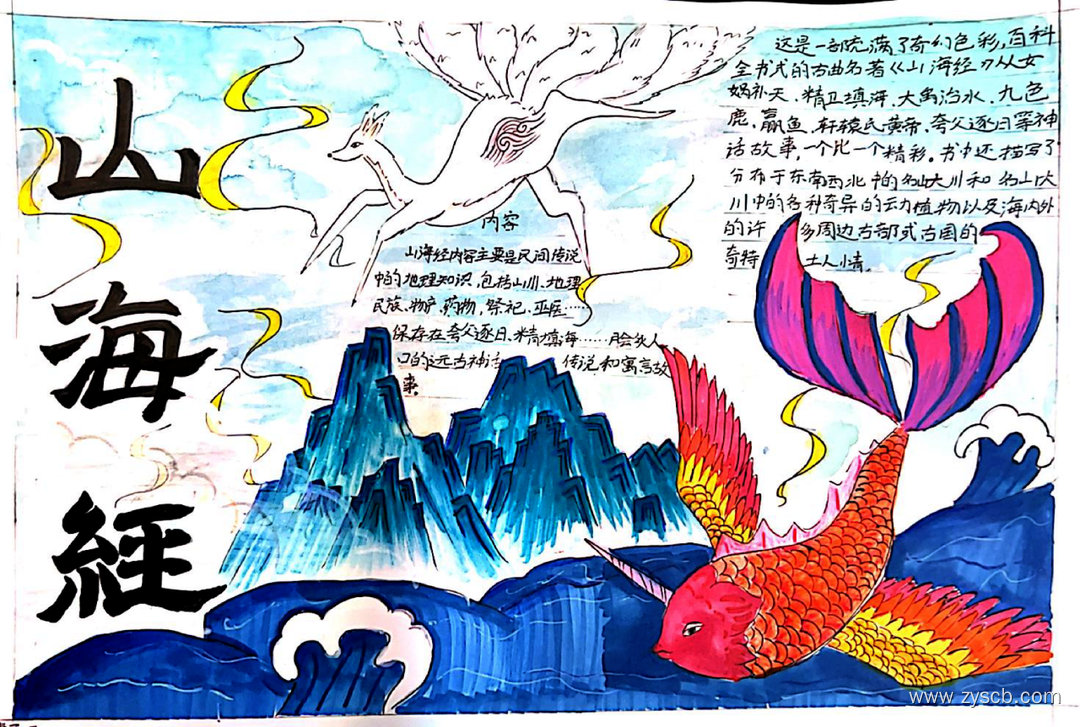 山海經
这是一部充满了奇幻色彩,百科
全书式的古曲名著《山海经》从女
娲补天、精卫填海、大禹治水、九色
鹿、蠃鱼、轩辕氏黄帝、夸父逐日等神
话故事,一个比一个精彩。书中还描写了
分布于东南西北中的名山大川和名山大
川中的各种奇异的动植物以及海内外
的许多周边古部式古国的
奇特土人小情。
内容
山海经内容主要是民间传说
中的地理知识,包括山川、地理
民族、物产、药物、祭祀、巫医……
保存在夸父逐日、精填海……脍炙人
口的远古神话传说和寓言故
事。
www.zyscb.com